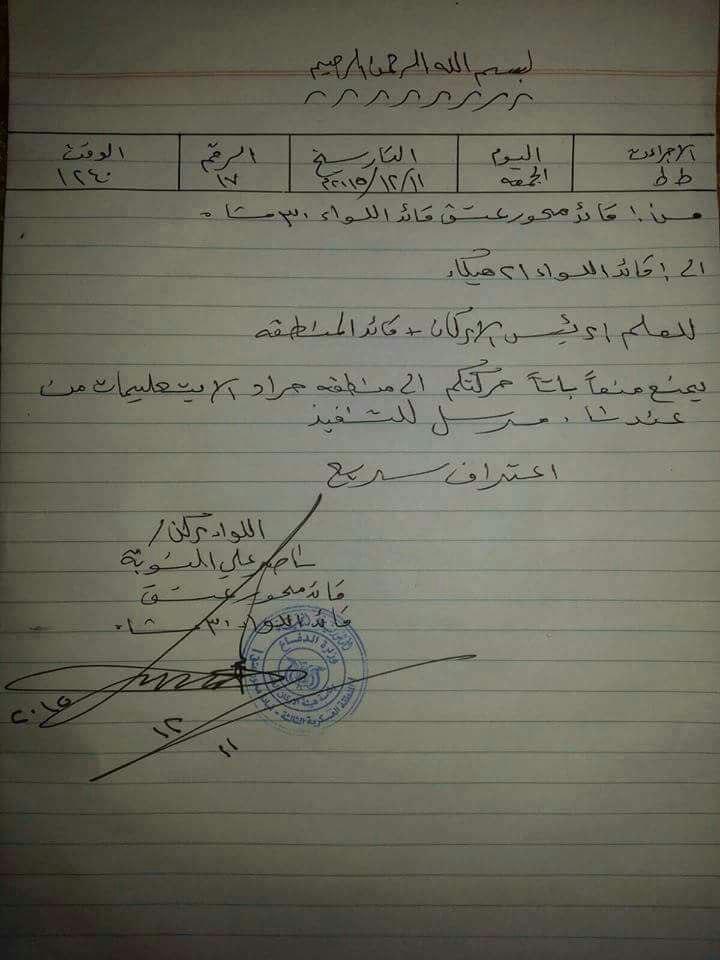 بسم الله الرحمن الرحيم
الاجراءت اليوم التاريخ الرقم الوقت
ط ط الجمعه ٢٠١٥/١٢/١١م ١٧ ١٢٤٠
من / قائد محور عتق قائد اللواء ٣٠ مشاه
الى / قائد اللواء ٢١ ميكا
للعلم / رئيس الاركان + قائد المنطقه
يمنع منعاً باتاً حركتكم الى منطقه جراد الابتعليمات من
عندنا . مرسل للتنفيذ
اعتراف سريع
اللواء ركن /
ناصر علي النوبة
قائد محور عتق
قائد اللواء ٣٠ مشاه
وزارة الدفاع
المنطقة العسكرية الثالثة
٢٠١٥
١٢
١١